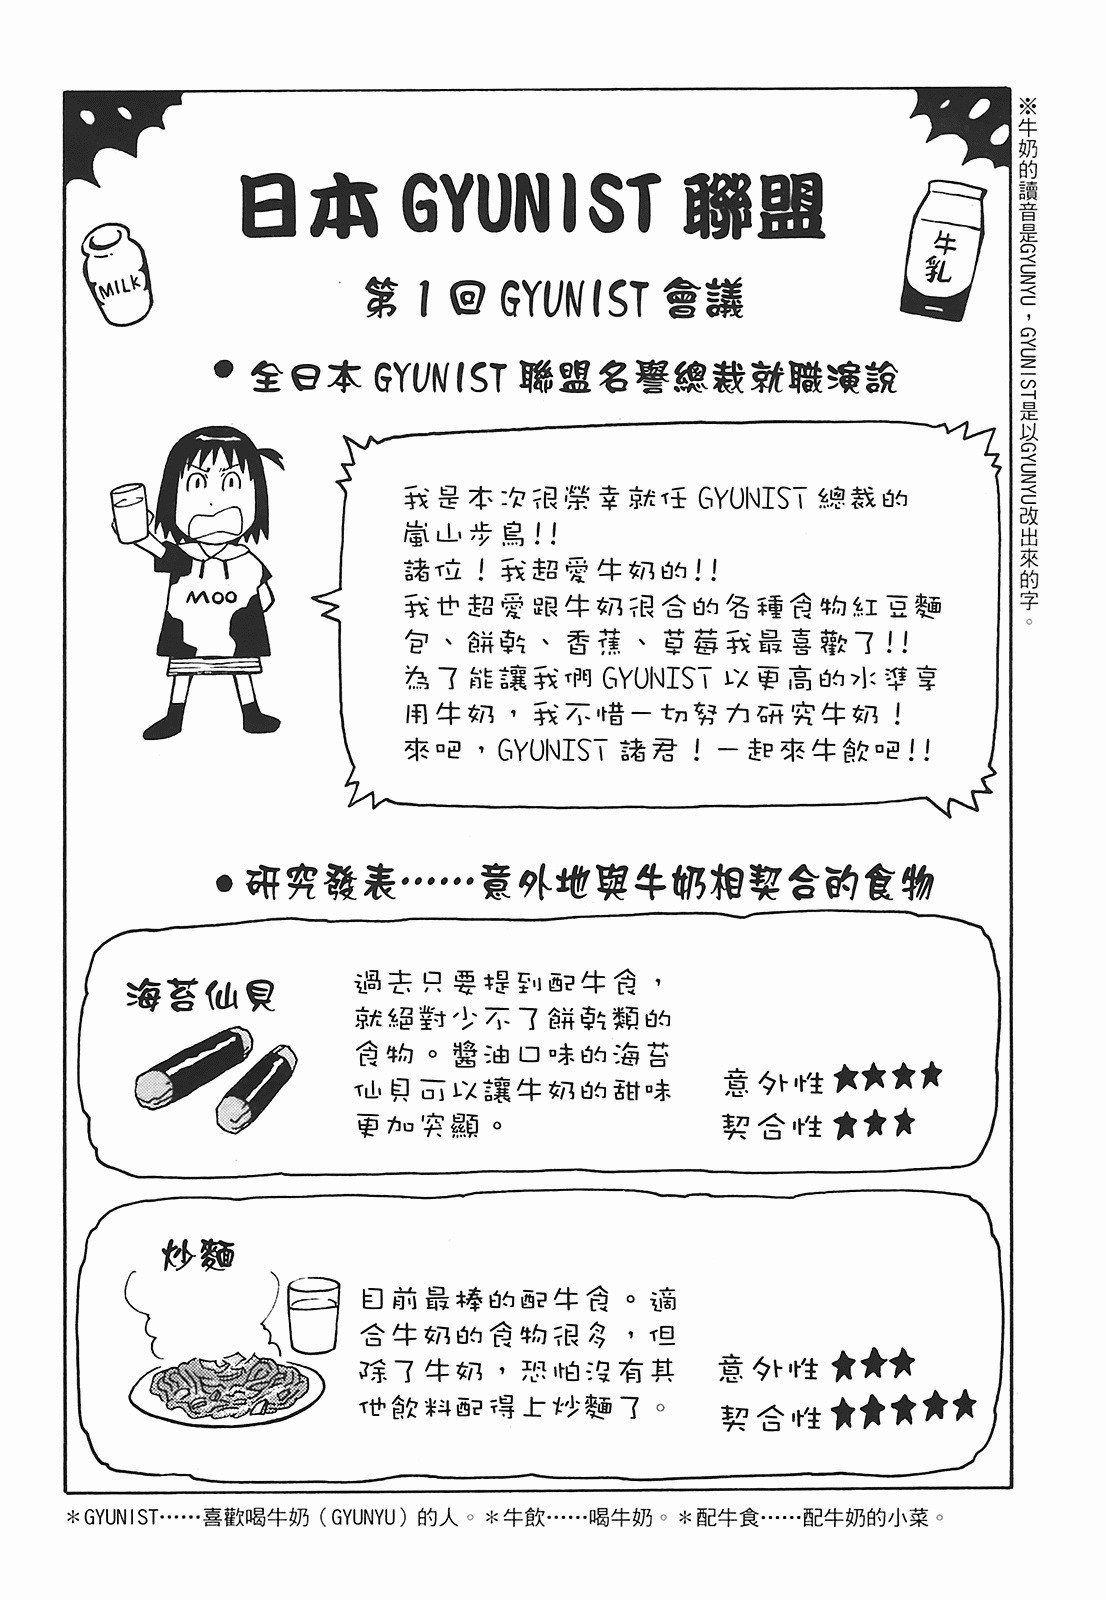 日本GYUNIST聯盟
MILK
牛
乳
第1回GYUNIST會議
●全日本GYUNIST聯盟名譽總裁就職演說
MOO
我是本次很榮幸就任GYUNIST總裁的
嵐山步鳥!!
諸位！我超愛牛奶的!!
我也超愛跟牛奶很合的各種食物紅豆麵
包、餅乾、香蕉、草莓我最喜歡了!!
為了能讓我們GYUNIST以更高的水準享
用牛奶，我不惜一切努力研究牛奶！
來吧，GYUNIST諸君！一起來牛飲吧!!
●研究發表……意外地與牛奶相契合的食物
海苔仙貝
過去只要提到配牛食，
就絕對少不了餅乾類的
食物。醬油口味的海苔
仙貝可以讓牛奶的甜味
更加突顯。
意外性★★★★
契合性★★★
炒麵
目前最棒的配牛食。適
合牛奶的食物很多，但
除了牛奶，恐怕沒有其
他飲料配得上炒麵了。
意外性★★★
契合性★★★★★
＊GYUNIST……喜歡喝牛奶（GYUNYU）的人。＊牛飲……喝牛奶。＊配牛食……配牛奶的小菜。
※牛奶的讀音是GYUNYU，GYUNIST是以GYUNYU改出來的字。